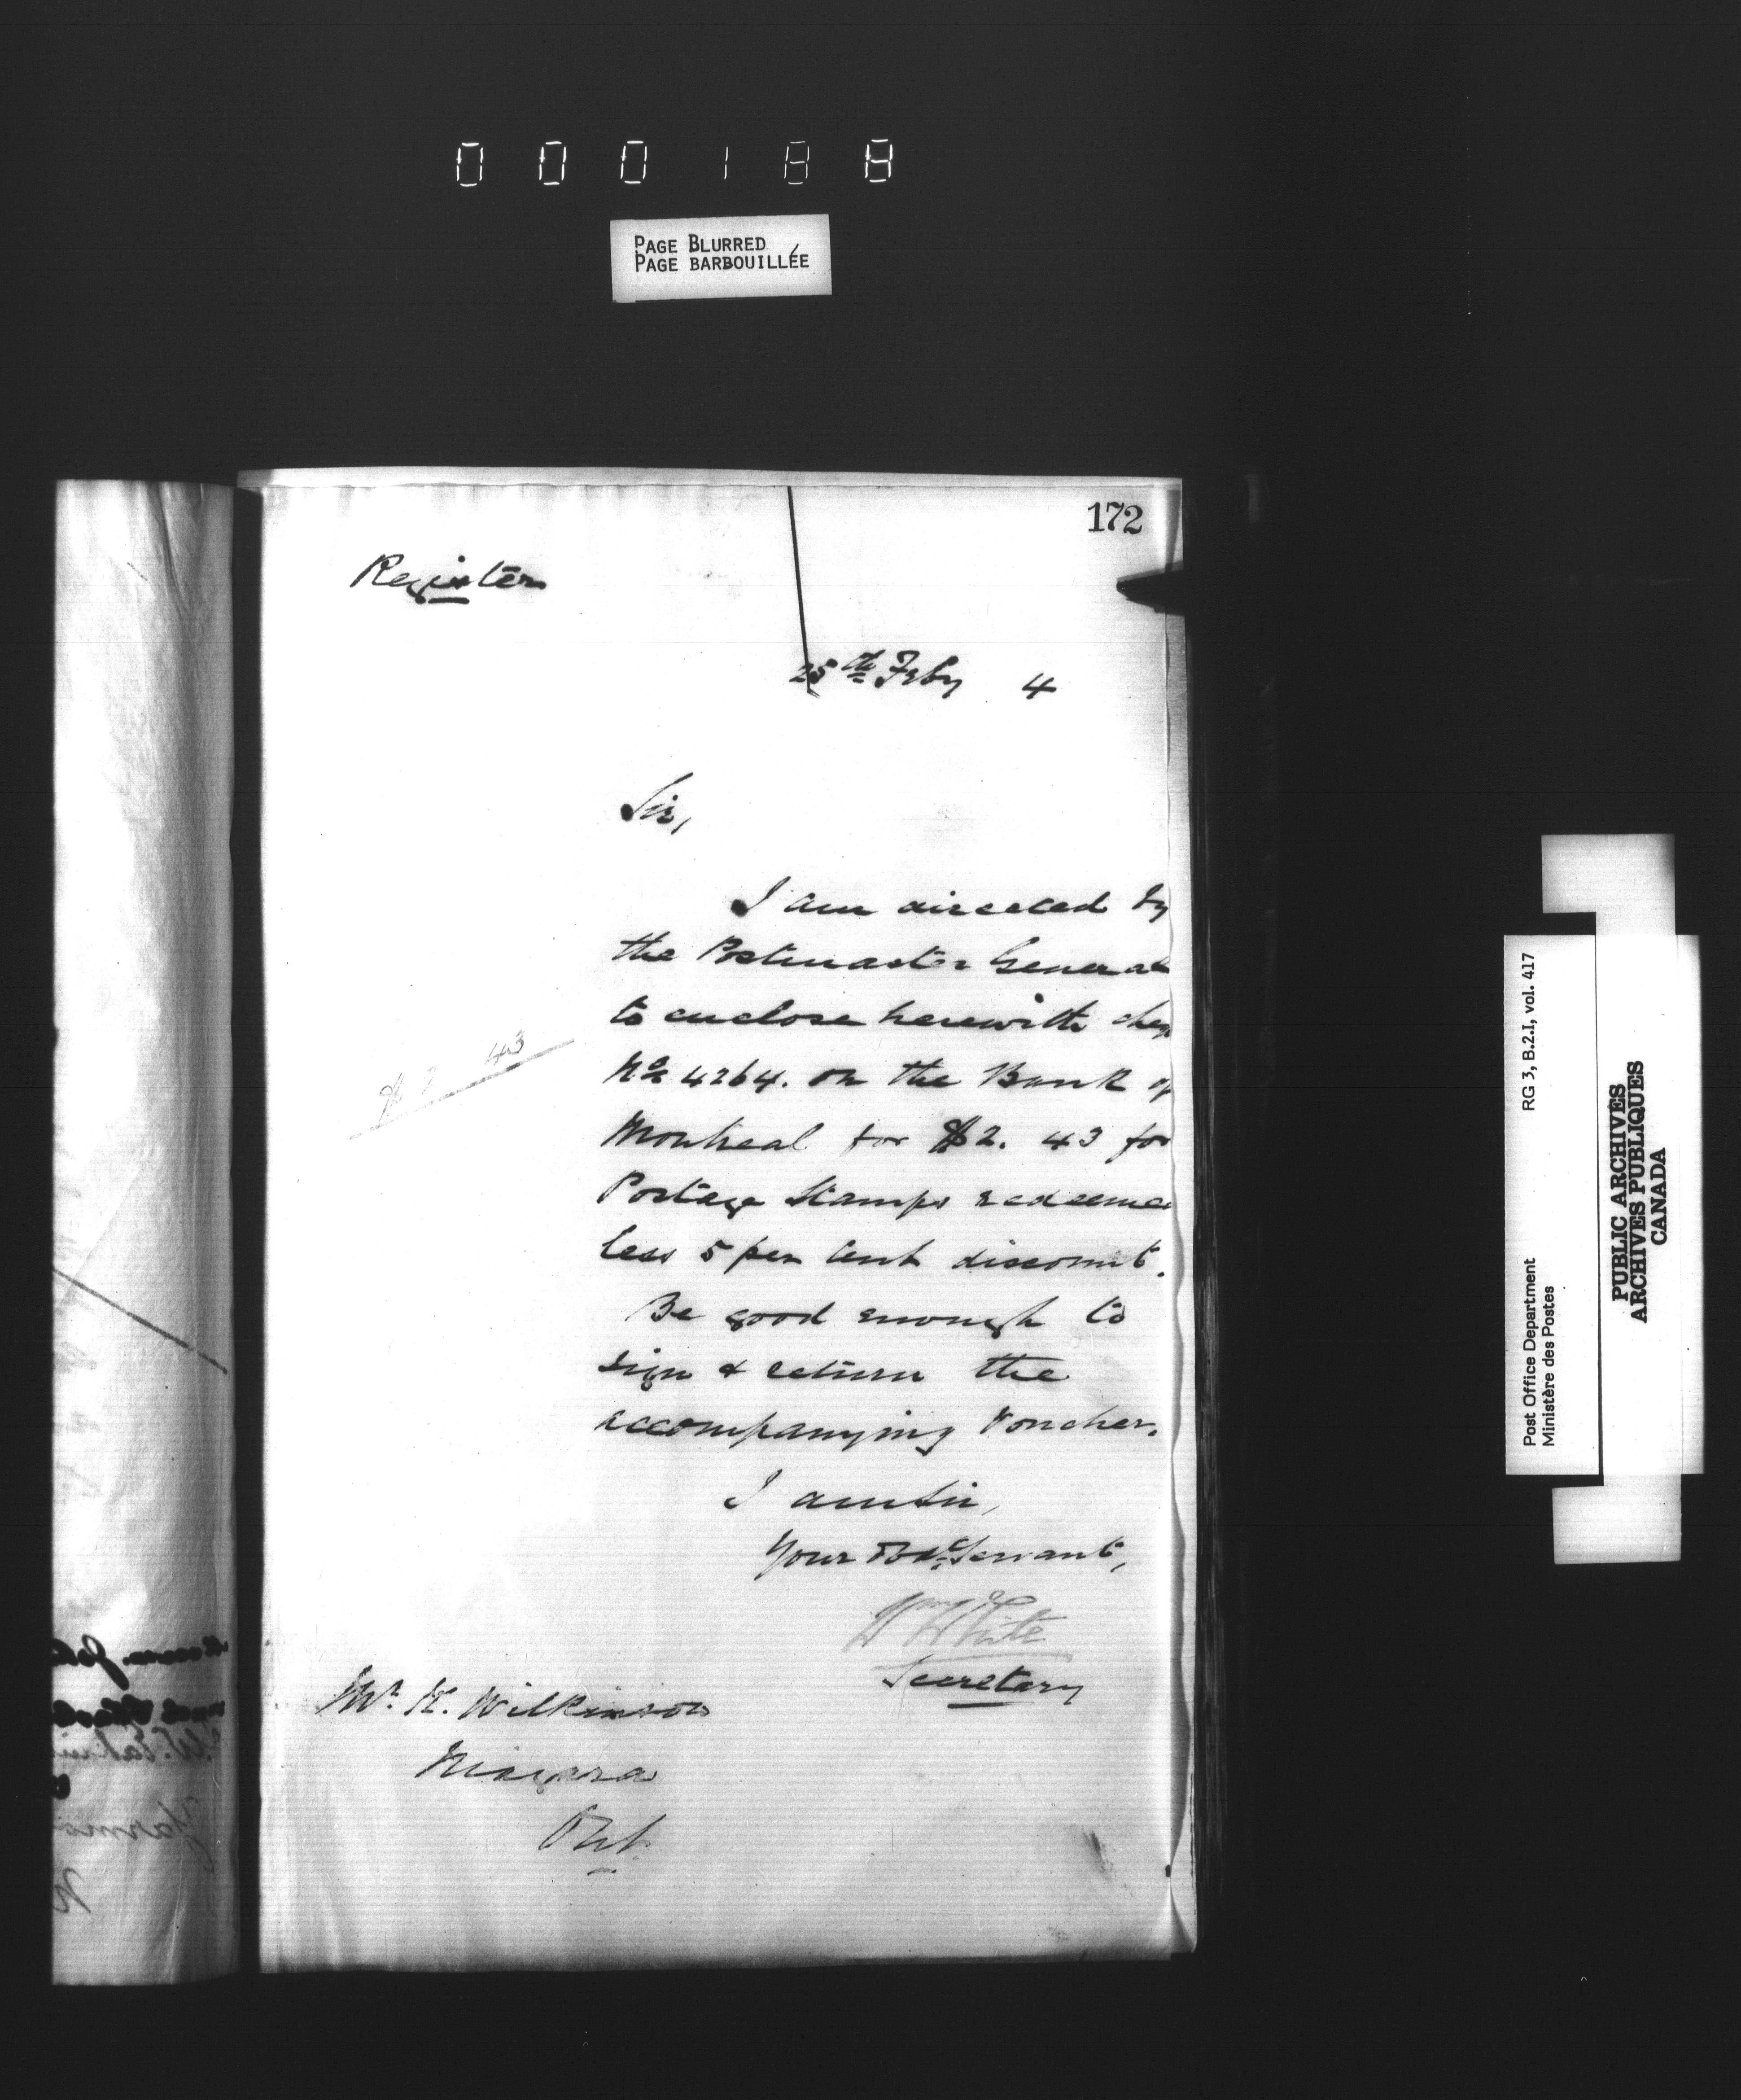 000188
PAGE BLURRED
PAGE BARBOUILLÉE
172
Register
25th Feby 4
Sir,
I am directed by
the Postmaster General
to enclose herewith cheq
No 4264. on the Bank of
Montreal for $2. 43 for
$2 43
Postage Stamps redeemed
less 5 per cent discount.
Be good enough to
sign & return the
accompanying Voucher.
I am Sir,
Your Obdt Servant,
Wm White
Secretary
Mr. H. Wilkinson
Niagara
Ont.
Post Office Department RG 3, B.2.I, vol. 417
Ministère des Postes
PUBLIC ARCHIVES
ARCHIVES PUBLIQUES
CANADA